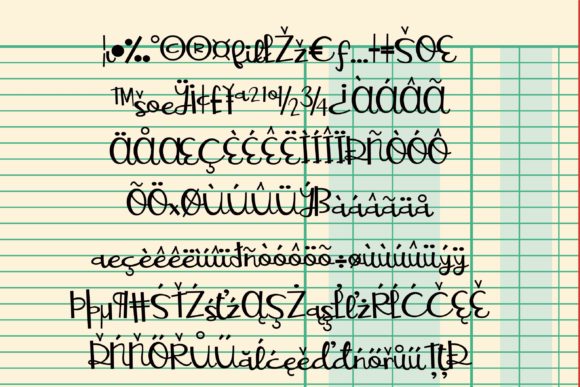 ¦µ•‰°©®¤ﬁﬂŽž€ƒ…†‡ŠŒ
™šœŸ¡¢£¥ª²¹º½¾¿ÀÁÂÃ
ÄÅÆÇÈÉÊËÌÍÎÏÐÑÒÓÔ
ÕÖ×ØÙÚÛÜÝßàáâãäå
æçèéêëìíîïðñòóôõö÷øùúûüýÿ
Þþµ¶#ŚŤŹśťźĄŞŻąşĽľżŔĹĆČĘĚ
ŇŐŘŮŰăĺćęěďđńňőřůűţŢĐ